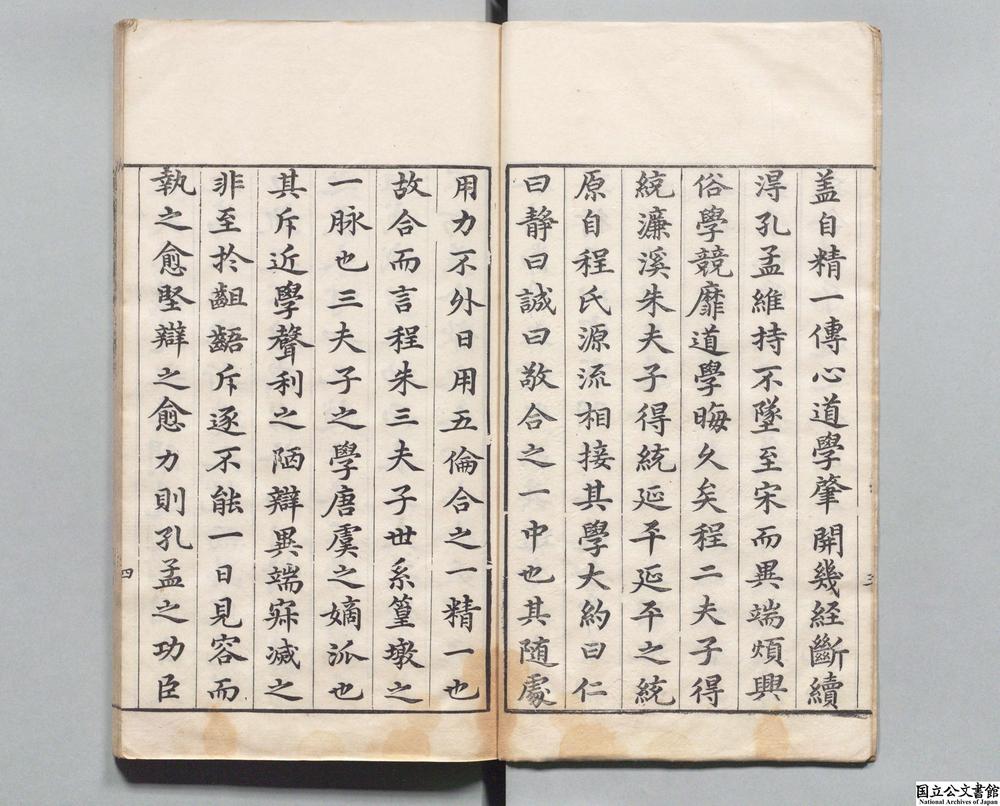 盖自精一傳心道學肇開幾經斷續
淂孔孟維持不墜至宋而異端煩興
俗學競靡道學晦久矣程二夫子得
統濂溪朱夫子得統延平延平之統
原自程氏源流相接其學大約曰仁
曰靜曰誠曰敬合之一中也其随處
三
用力不外日用五倫合之一精一也
故合而言程朱三夫子世系篁墩之
一脉也三夫子之學唐虞之嫡派也
其斥近學聲利之陋辯異端寂滅之
非至扵齟齬斥逐不能一日見容而
執之愈堅辯之愈力則孔孟之功臣
四
国立公文書館
National Archives of Japan